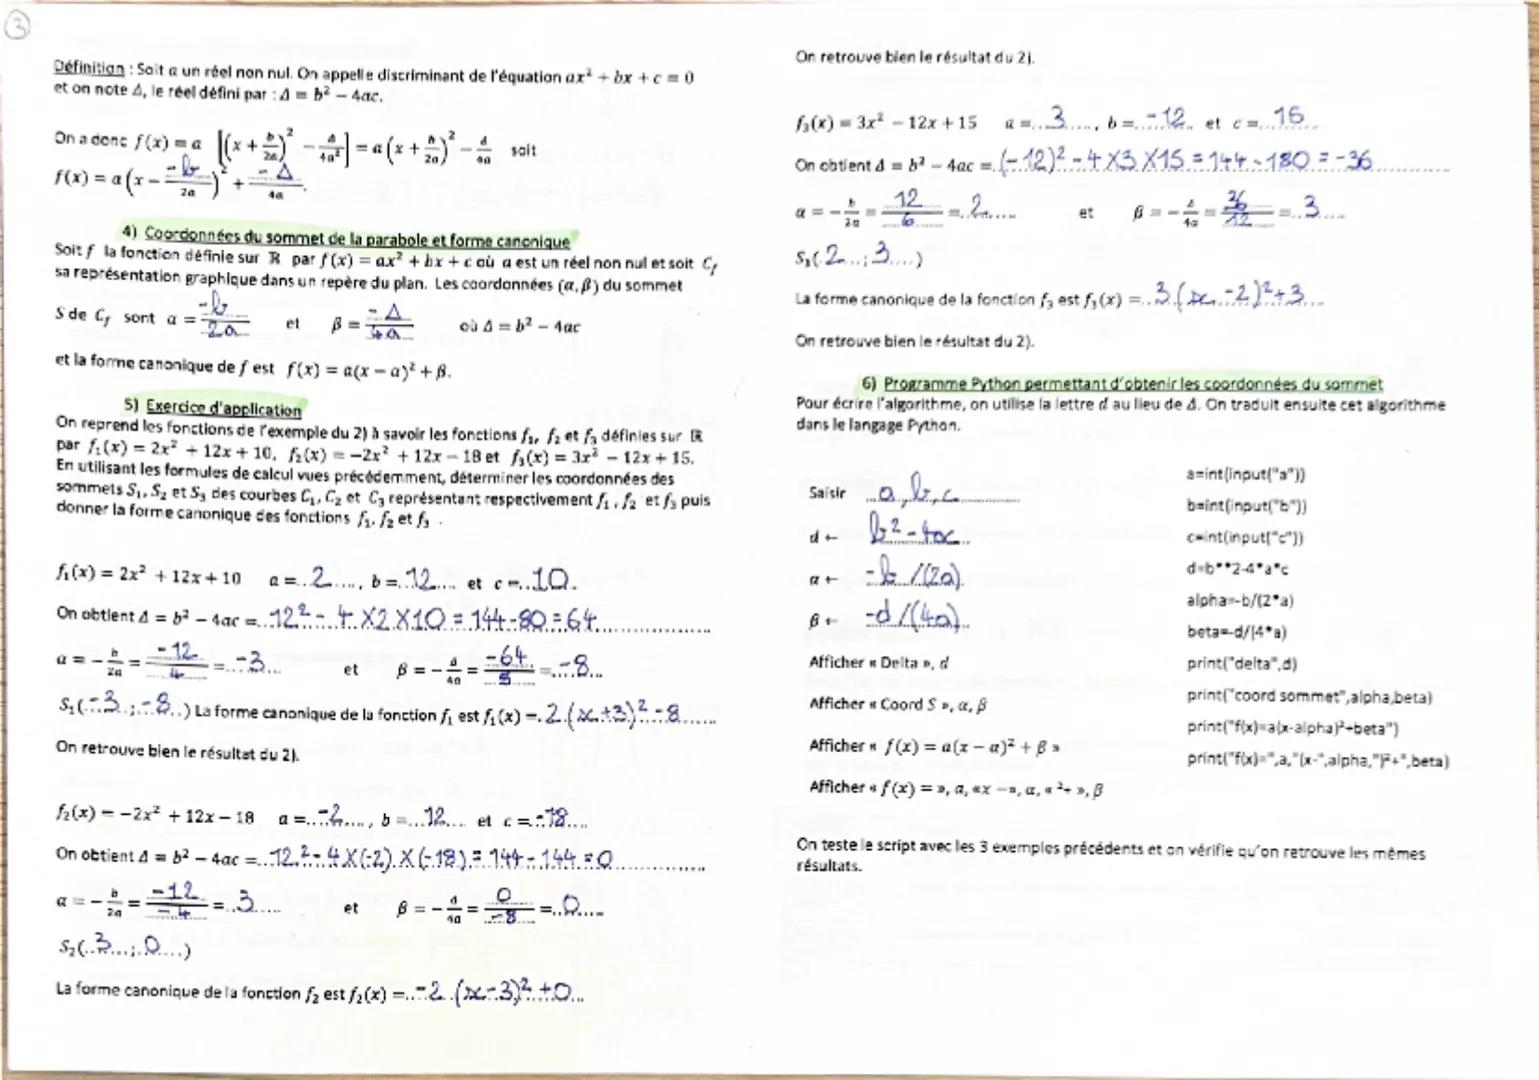 3
Définition : Soit a un réel non nul. On appelle discriminant de l'équation ax² + bx + c = 0
et on note Δ, le réel défini par : Δ = b² – 4ac.
On a donc f(x) = a [(x + b/2a)² – Δ/4a²] = a (x + b/2a)² – Δ/4a soit
f(x) = a (x – -b/2a)² + -Δ/4a.
4) Coordonnées du sommet de la parabole et forme canonique
Soit f la fonction définie sur ℝ par f(x) = ax² + bx + c où a est un réel non nul et soit C_f
sa représentation graphique dans un repère du plan. Les coordonnées (α, β) du sommet
S de C_f sont α = -b/2a et β = -Δ/4a où Δ = b² – 4ac
et la forme canonique de f est f(x) = a(x – α)² + β.
5) Exercice d'application
On reprend les fonctions de l'exemple du 2) à savoir les fonctions f₁, f₂ et f₃ définies sur ℝ
par f₁(x) = 2x² + 12x + 10, f₂(x) = –2x² + 12x – 18 et f₃(x) = 3x² – 12x + 15.
En utilisant les formules de calcul vues précédemment, déterminer les coordonnées des
sommets S₁, S₂ et S₃ des courbes C₁, C₂ et C₃ représentant respectivement f₁, f₂ et f₃ puis
donner la forme canonique des fonctions f₁, f₂ et f₃ .
f₁(x) = 2x² + 12x + 10 a = 2, b = 12 et c = 10.
On obtient Δ = b² – 4ac = 12² - 4 X2 X10 = 144-80 = 64
α = – b/2a = -12/4 = -3 et β = – Δ/4a = -64/8 = -8
S₁(-3 ; -8) La forme canonique de la fonction f₁ est f₁(x) = 2 (x+3)² -8
On retrouve bien le résultat du 2).
f₂(x) = –2x² + 12x – 18 a = -2, b = 12 et c = -18
On obtient Δ = b² – 4ac = 12² - 4 X(-2) X(-18) = 144 - 144 = 0
α = – b/2a = -12/-4 = 3 et β = – Δ/4a = 0/-8 = 0
S₂(3 ; 0)
La forme canonique de la fonction f₂ est f₂(x) = -2 (x-3)² +0
On retrouve bien le résultat du 2).
f₃(x) = 3x² – 12x + 15 a = 3, b = -12 et c = 16
On obtient Δ = b² – 4ac = (-12)² - 4 X3 X15 = 144 - 180 = -36
α = – b/2a = 12/6 = 2 et β = – Δ/4a = 36/12 = 3
S₃(2 ; 3)
La forme canonique de la fonction f₃ est f₃(x) = 3 (x -2)² +3
On retrouve bien le résultat du 2).
6) Programme Python permettant d'obtenir les coordonnées du sommet
Pour écrire l'algorithme, on utilise la lettre d au lieu de Δ. On traduit ensuite cet algorithme
dans le langage Python.
Saisir a, b, c
d ← b² - 4ac
α ← -b /(2a)
β ← -d /(4a)
Afficher « Delta », d
Afficher « Coord S », α, β
Afficher « f(x) = a(x – α)² + β »
Afficher « f(x) = », a, «x –», α, « ²+ », β
a=int(input("a"))
b=int(input("b"))
c=int(input("c"))
d=b**2-4*a*c
alpha=-b/(2*a)
beta=-d/(4*a)
print("delta",d)
print("coord sommet",alpha,beta)
print("f(x)=a(x-alpha)²+beta")
print("f(x)=",a,"(x-",alpha,")²+",beta)
On teste le script avec les 3 exemples précédents et on vérifie qu'on retrouve les mêmes
résultats.